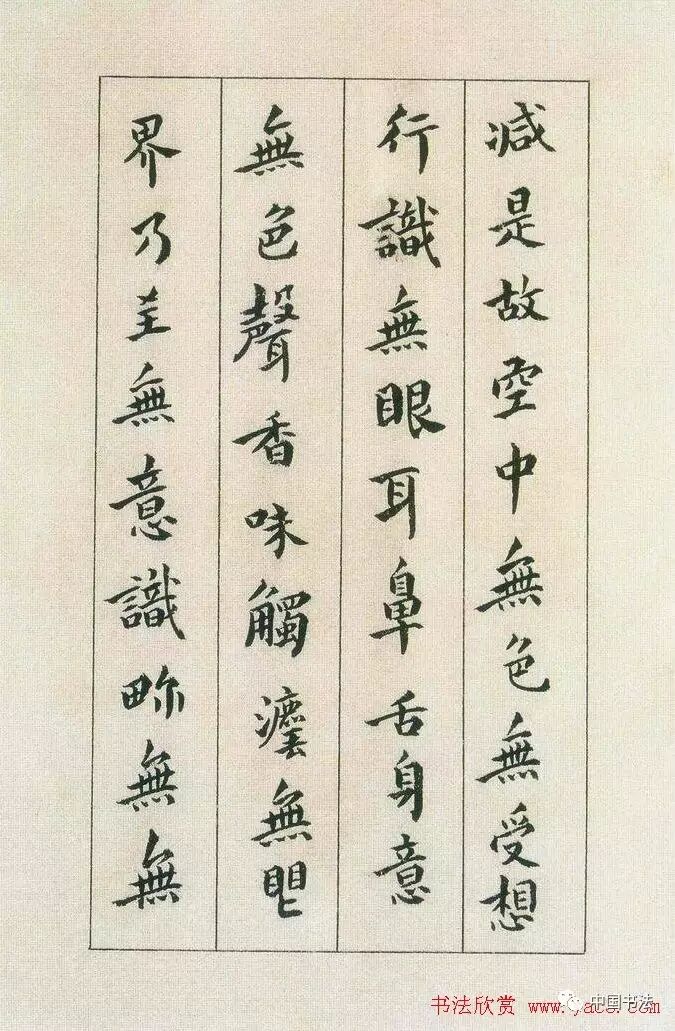 減是故空中無色無受想
行識無眼耳鼻舌身意
無色聲香味觸灋無眼
界乃至無意識畍無無
书法欣赏 www.yac8.com
中国书法